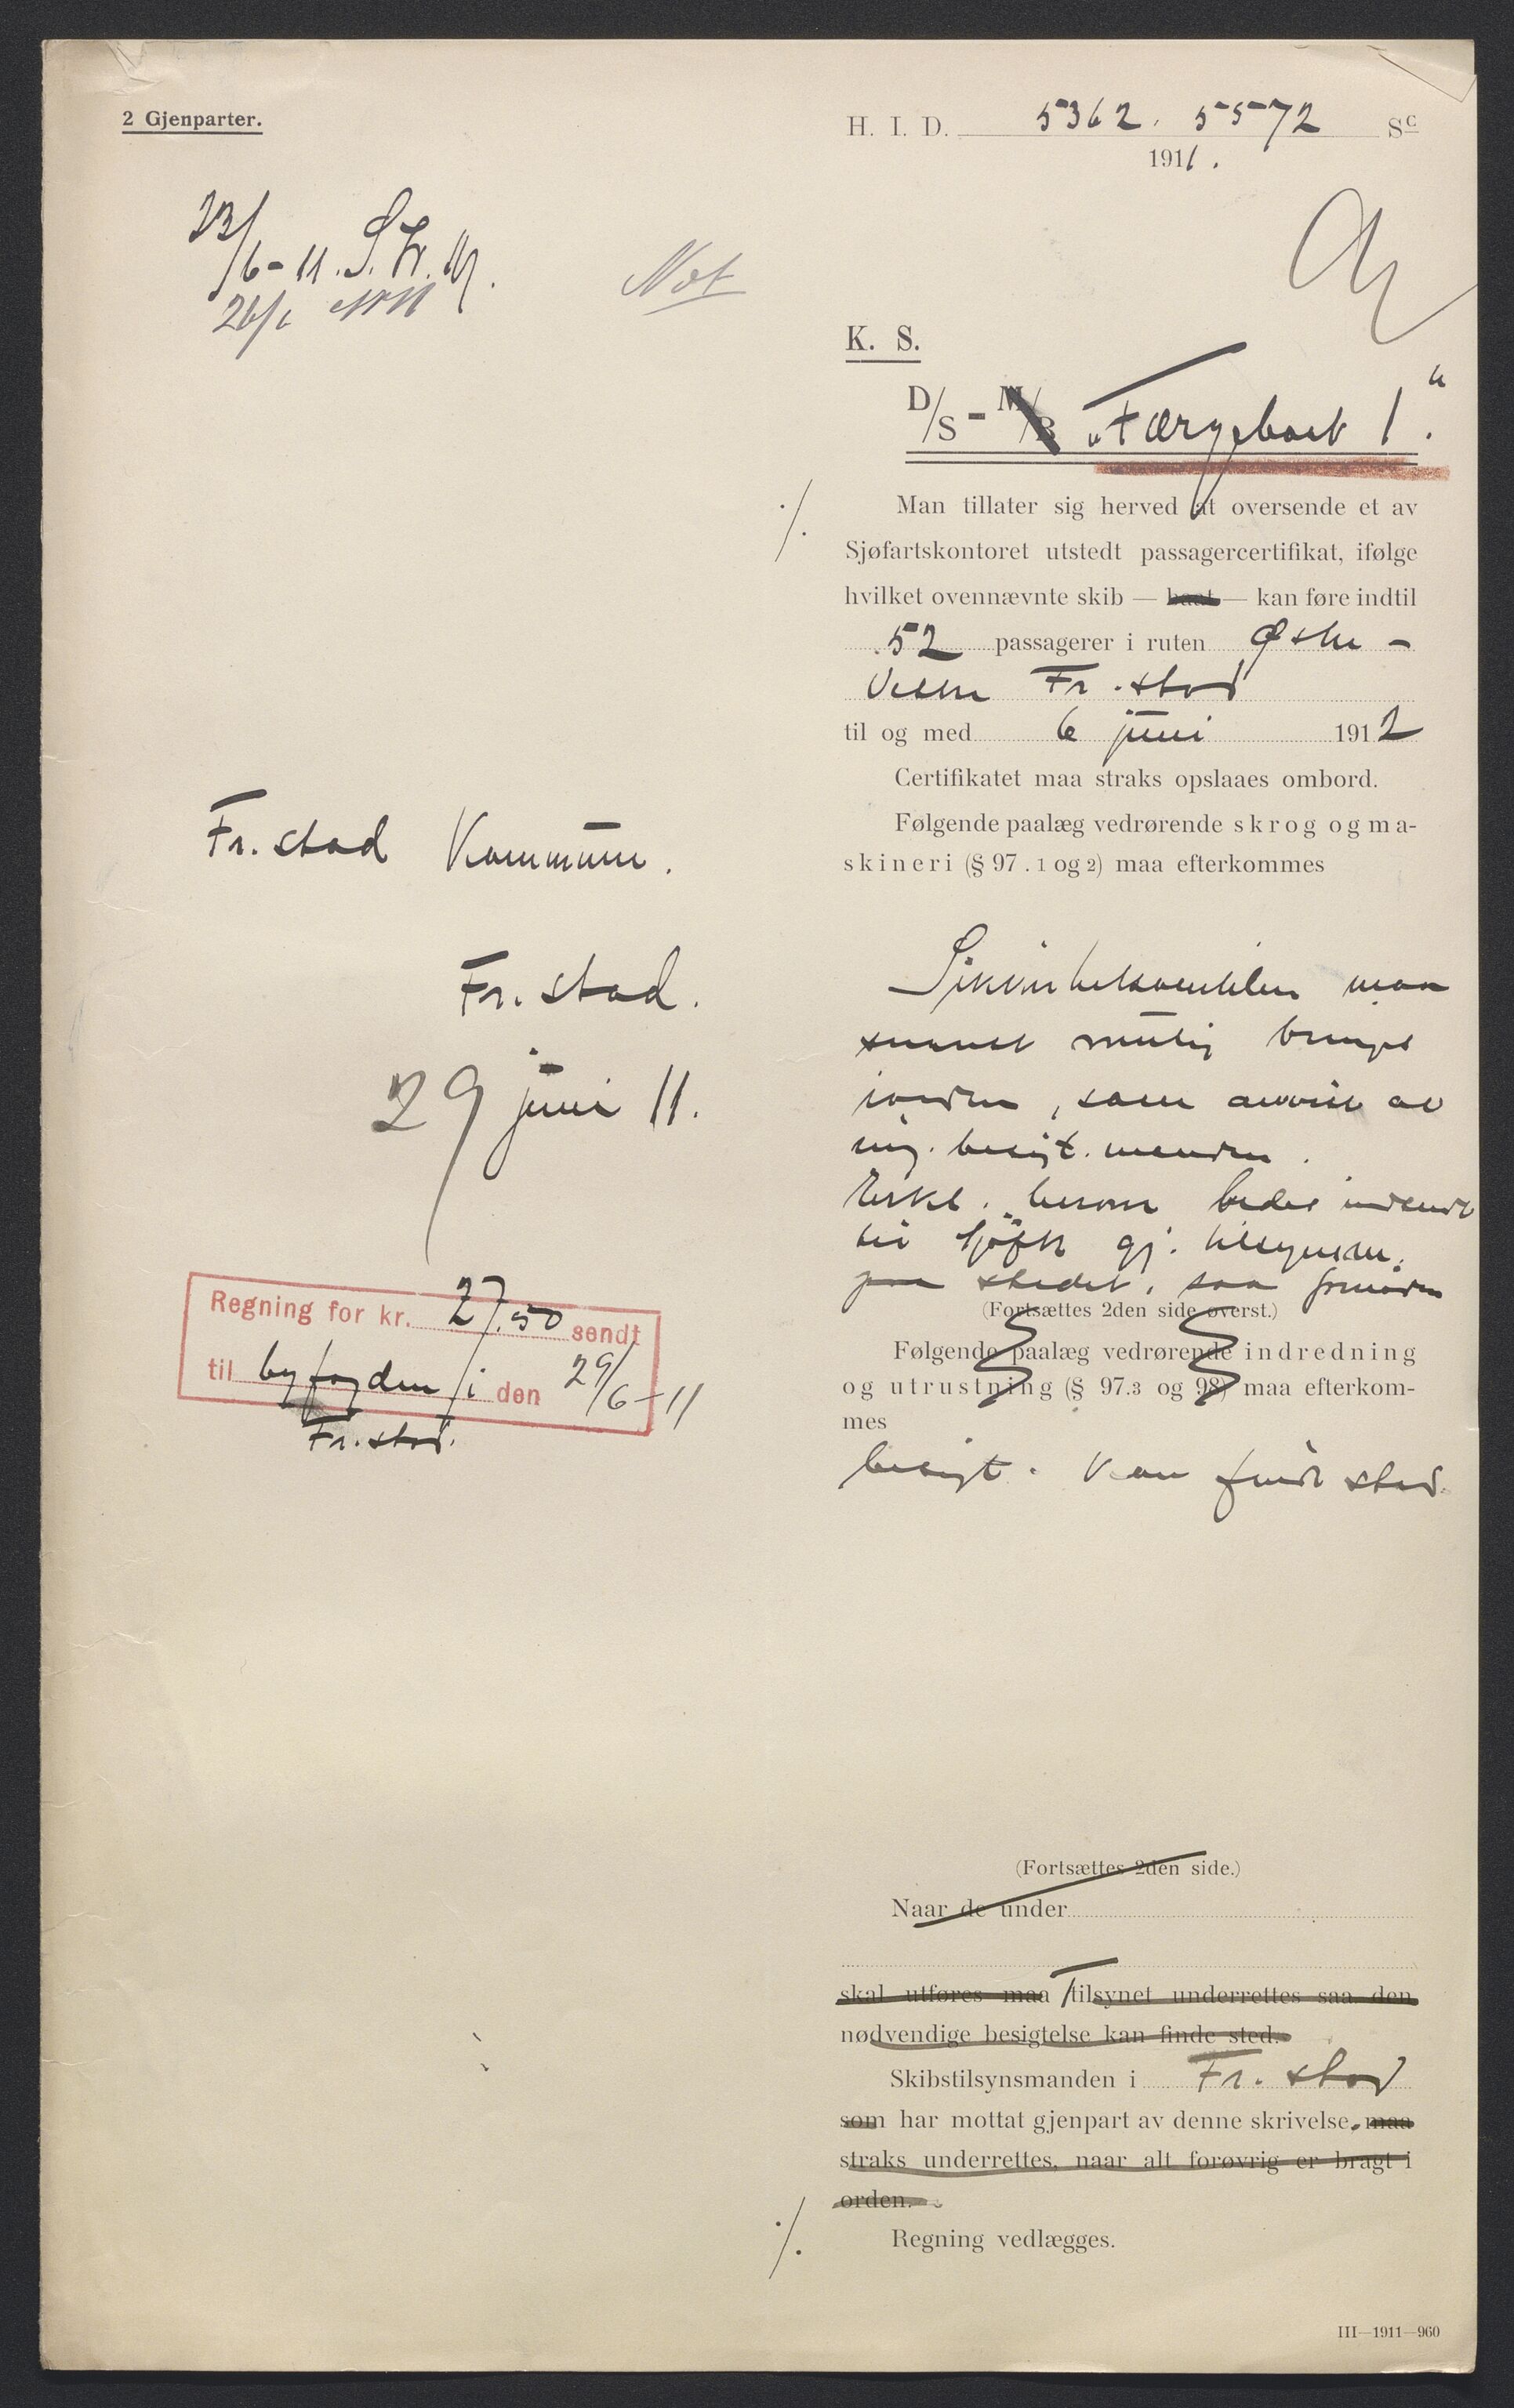 2 Gjenparter.
H. I. D. 5362. 5572 Sc
1911.
23/6-11. S.
26/6
Not
K. S.
D/S - M/B „Færgebaat 1“.
Man tillater sig herved at oversende et av
Sjøfartskontoret utstedt passagercertifikat, ifølge
hvilket ovennævnte skib — baat — kan føre indtil
52 passagerer i ruten Østre -
Vestre Fr.stad
til og med 6 juni 1912
Certifikatet maa straks opslaaes ombord.
Følgende paalæg vedrørende skrog og ma-
skineri (§ 97. 1 og 2) maa efterkommes
Fr. stad Kommune.
Fr. stad.
29 juni 11.
Sikkerhetsventilen maa
snarest mulig bringes
iorden, som anvist av
besigt. manden.
Erkl. herom bedes indsendt
til Sjöfk gj. tilsynsm.
paa stedet, saa fornøden
(Fortsættes 2den side øverst.)
Følgende paalæg vedrørende indredning
og utrustning (§ 97.3 og 98) maa efterkom-
mes
besigt. kan finde sted.
Regning for kr. 27.50 sendt
til byfogden i den 29/6-11
Fr.stad.
(Fortsættes 2den side.)
Naar de under
skal utføres maa Tilsynet underrettes saa den
nødvendige besigtelse kan finde sted.
Skibstilsynsmanden i Fr. stad
som har mottat gjenpart av denne skrivelse, maa
straks underrettes, naar alt forøvrig er bragt i
orden.
Regning vedlægges.
III—1911—960